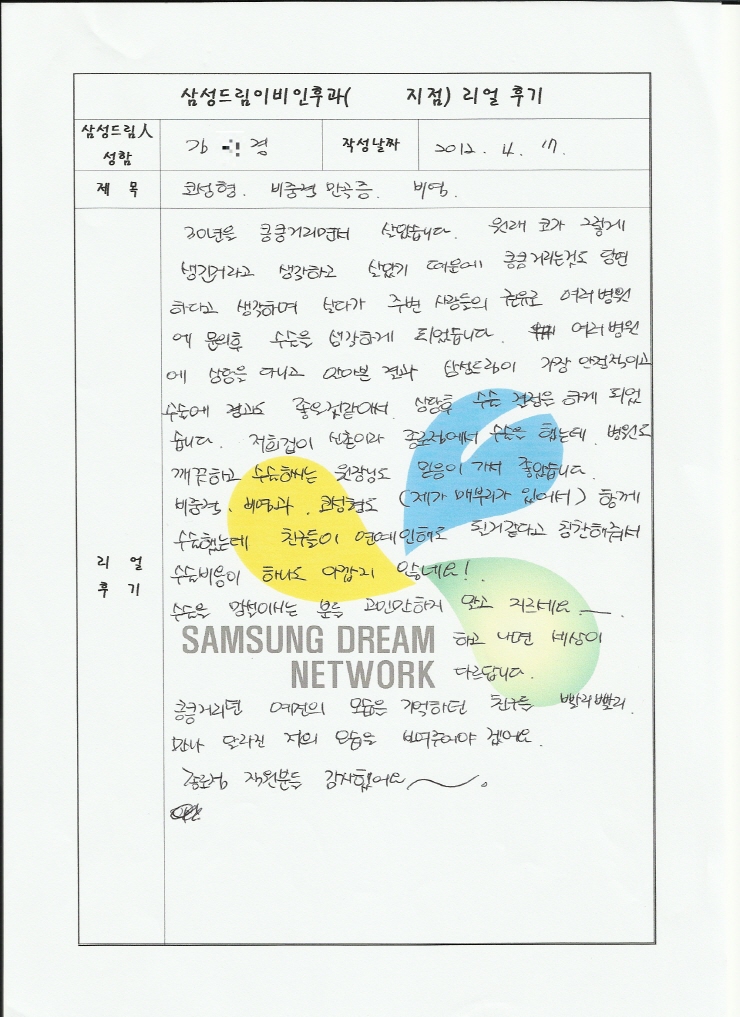 삼성드림이비인후과( 지점) 리얼 후기
삼성드림人 성함
작성날짜 2012. 4. 17.
제 목 코성형. 비중격 만곡증. 비염.
리 얼 후 기
30년을 킁킁거리면서 살았습니다. 원래 코가 그렇게
생긴거라고 생각하고 살았기 때문에 킁킁거리는것도 당연
하다고 생각하며 살다가 주변 사람들의 권유로 여러병원
에 문의후 수술을 생각하게 되었습니다. 여러병원
에 상담을 다니고 알아본 결과 삼성드림이 가장 안정적이고
수술에 경과도 좋은것같아서 상담후 수술 결정을 하게 되었
습니다. 저희집이 신촌이라 종로점에서 수술을 했는데 병원도
깨끗하고 수술하시는 원장님도 믿음이 가서 좋았습니다.
비중격, 비염과 코성형도 (제가 매부리가 있어서) 함께
수술했는데 친구들이 연예인해도 될거같다고 칭찬해줘서
수술비용이 하나도 아깝지 않네요!
수술을 망설이시는 분들 고민만하지 말고 지르세요
SAMSUNG DREAM NETWORK
하고 나면 세상이
다르답니다.
킁킁거리던 예전의 모습을 기억하던 친구들 빨리빨리
만나 달라진 저의 모습을 보여주어야 겠어요.
종로점 직원분들 감사했어요~.